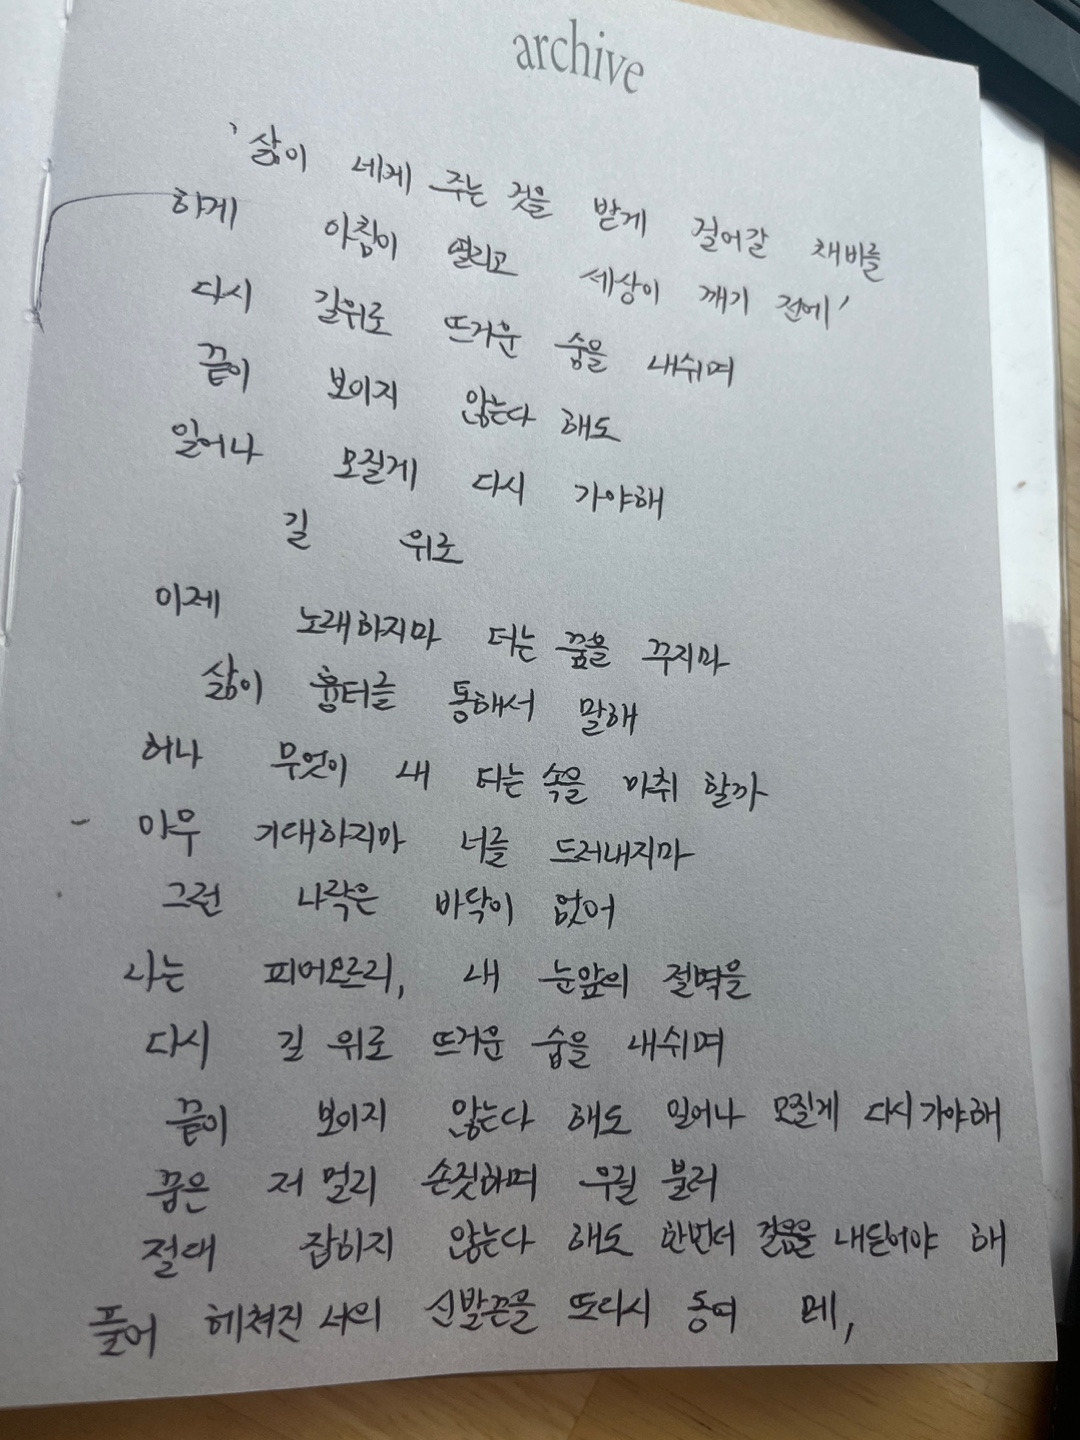 archive
'삶이 네게 주는 것을 받게 걸어갈 채비를
하게 아침이 열리고 세상이 깨기 전에'
다시 길위로 뜨거운 숨을 내쉬며
끝이 보이지 않는다 해도
일어나 모질게 다시 가야해
길 위로
이제 노래하지마 더는 꿈을 꾸지마
삶이 흉터를 통해서 말해
허나 무엇이 내 타는 속을 마취 할까
아우 기대하지마 너를 드러내지마
그런 나락은 바닥이 없어
나는 피어오르리, 내 눈앞의 절벽을
다시 길 위로 뜨거운 숨을 내쉬며
끝이 보이지 않는다 해도 일어나 모질게 다시 가야해
꿈은 저 멀리 손짓하며 우릴 불러
절대 잡히지 않는다 해도 한번더 걸음을 내딛어야 해
풀어 헤쳐진 너의 신발끈을 또다시 동여 메,